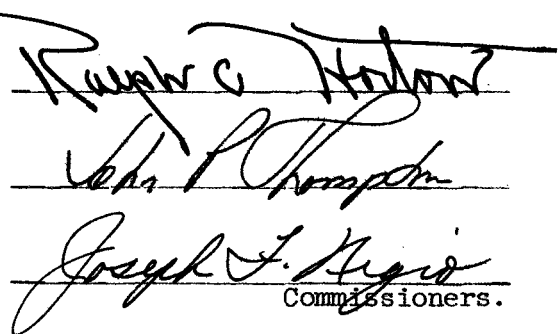 Ralph C Horton
John P Thompson
Joseph F. Nigio
Commissioners.